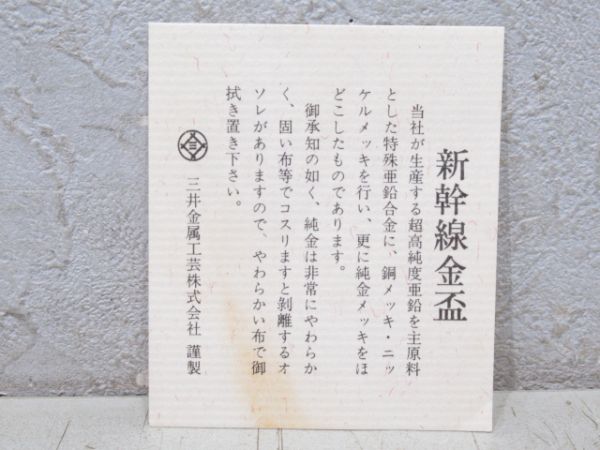 新幹線金盃
当社が生産する超高純度亜鉛を主原料
とした特殊亜鉛合金に、銅メッキ・ニッ
ケルメッキを行い、更に純金メッキをほ
どこしたものであります。
御承知の如く、純金は非常にやわらか
く、固い布等でコスりますと剥離するオ
ソレがありますので、やわらかい布で御
拭き置き下さい。
三井金属工芸株式会社 謹製